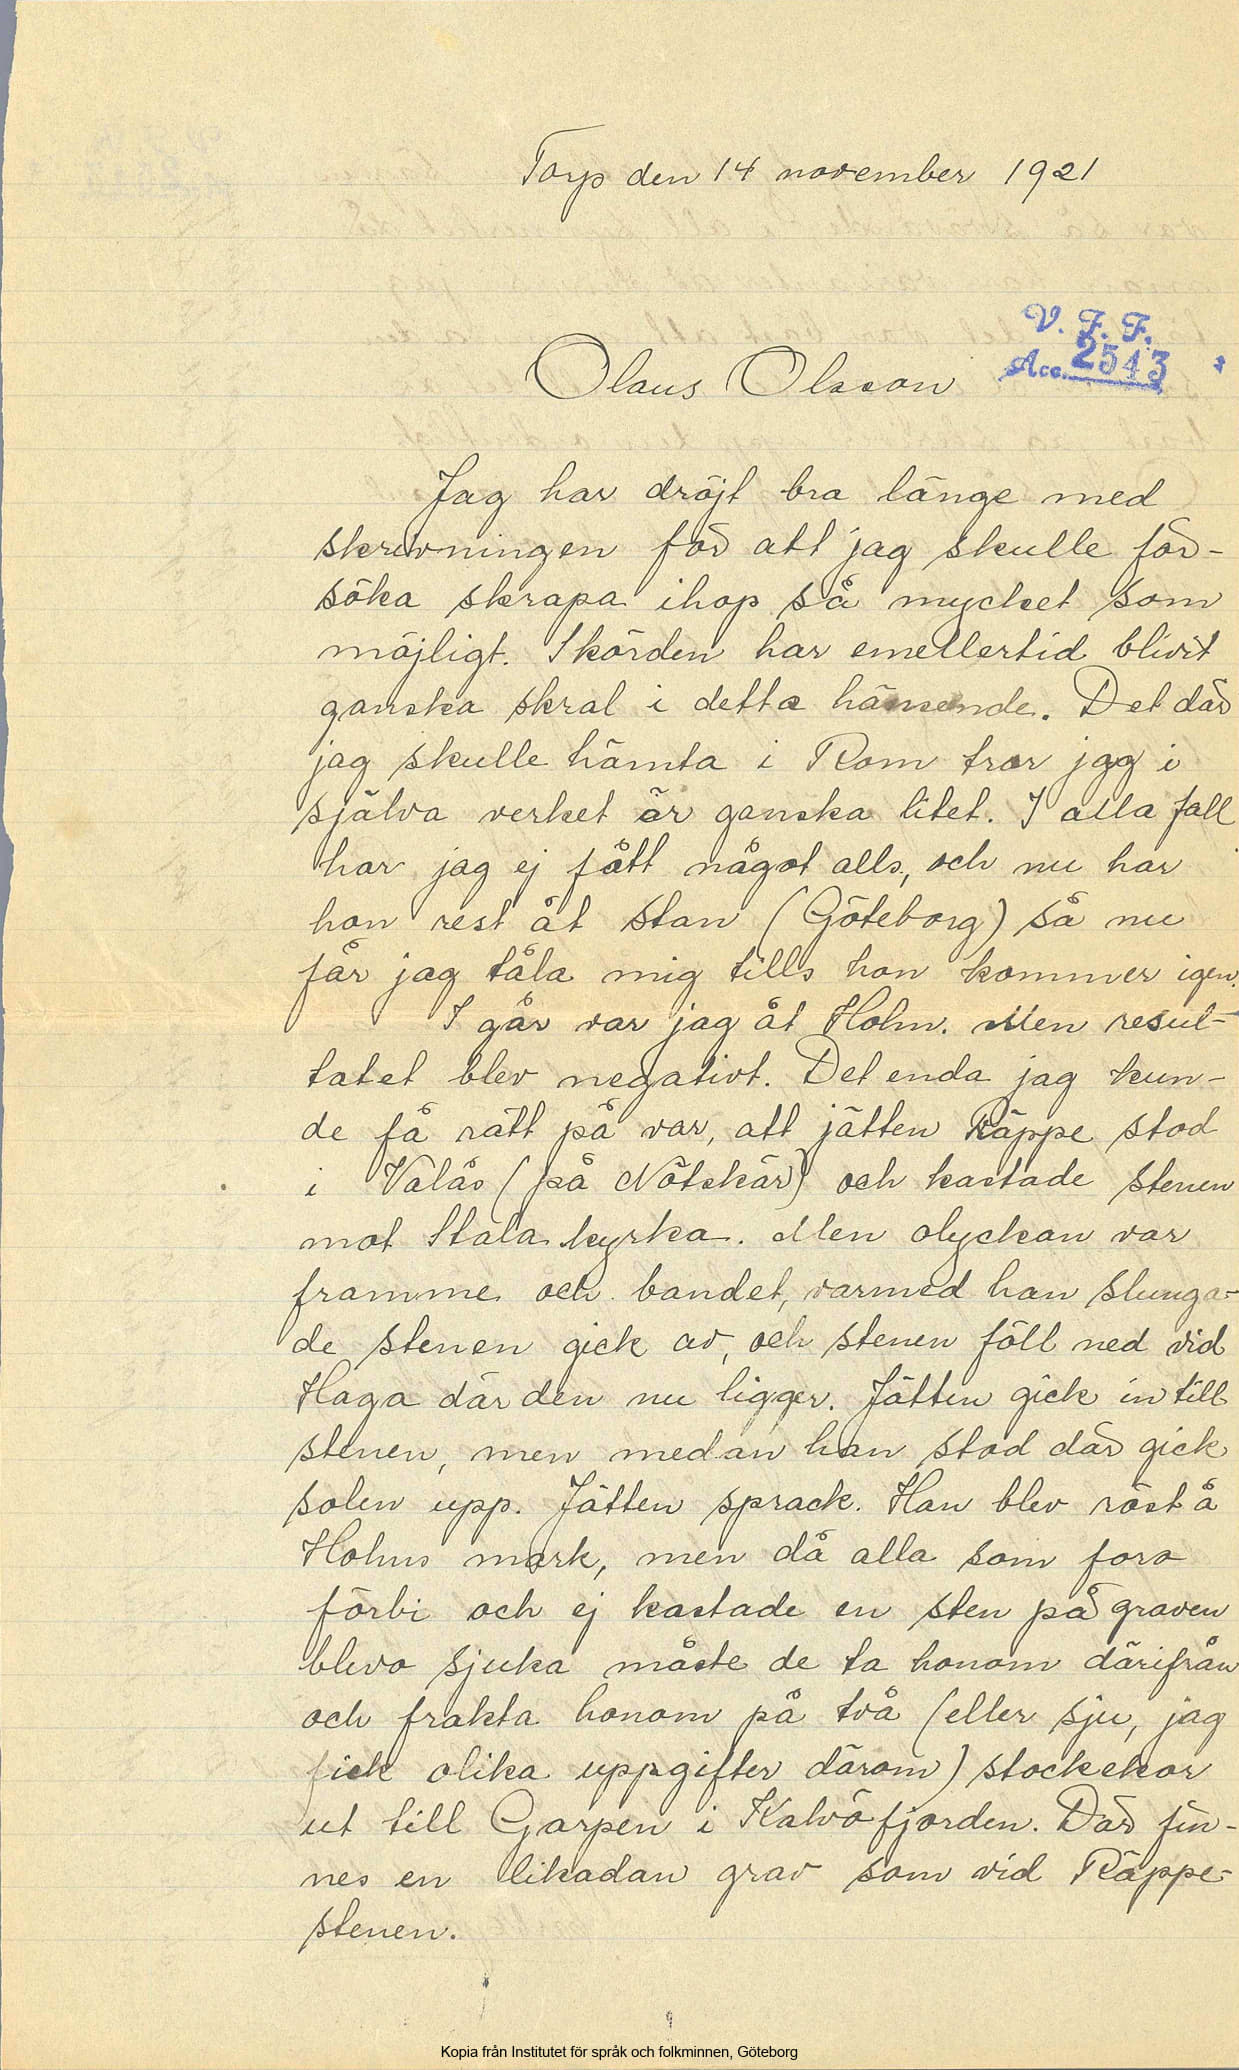 Torp den 14 november 1921
V. F. F.
Acc. 2543
Olaus Olsson
Jag har dröjt bra länge med
skrivningen för att jag skulle för-
söka skrapa ihop så mycket som
möjligt. Skörden har emellertid blivit
ganska skral i detta hänseende. Det där
jag skulle hämta i Rom tror jag i
själva verket är ganska litet. I alla fall
har jag ej fått något alls, och nu har
hon rest åt stan (Göteborg) så nu
får jag tåla mig tills hon kommer igen.
I går var jag åt Holm. Men resul-
tatet blev negativt. Det enda jag kun-
de få rätt på var, att jätten Räppe stod
i Valås (på Nötskär) och kastade stenen
mot Stala kyrka. Men olyckan var
framme och bandet, varmed han slunga-
de stenen gick av, och stenen föll ned vid
Haga där den nu ligger. Jätten gick in till
stenen, men medan han stod där gick
solen upp. Jätten sprack. Han blev röst å
Holms mark, men då alla som foro
förbi och ej kastade en sten på graven
blevo sjuka måste de ta honom därifrån
och frakta honom på två (eller sju, jag
fick olika uppgifter därom) stockekor
ut till Garpen i Kalvöfjorden. Där fin-
nes en likadan grav som vid Räppe-
stenen.
Kopia från Institutet för språk och folkminnen, Göteborg